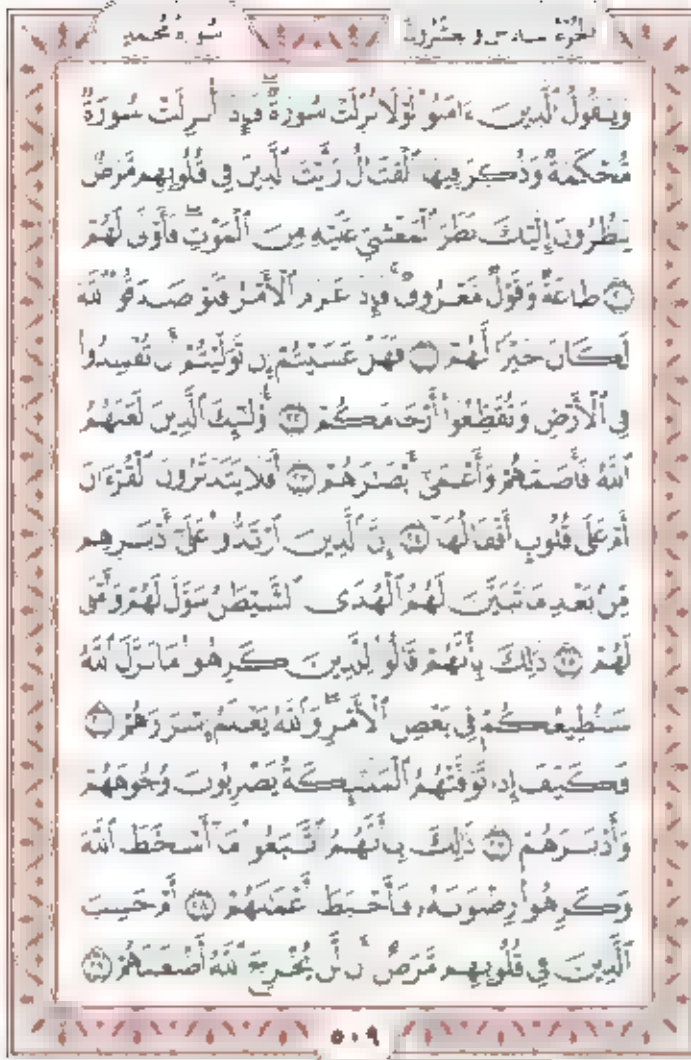 الجزء السادس والعشرون سورة محمد
وَيَقُولُ ٱلَّذِينَ ءَامَنُوا۟ لَوْلَا نُزِّلَتْ سُورَةٌ ۖ فَإِذَآ أُنزِلَتْ سُورَةٌ
مُّحْكَمَةٌ وَذُكِرَ فِيهَا ٱلْقِتَالُ ۙ رَأَيْتَ ٱلَّذِينَ فِى قُلُوبِهِم مَّرَضٌ
يَنظُرُونَ إِلَيْكَ نَظَرَ ٱلْمَغْشِىِّ عَلَيْهِ مِنَ ٱلْمَوْتِ ۖ فَأَوْلَىٰ لَهُمْ
٢٠ طَاعَةٌ وَقَوْلٌ مَّعْرُوفٌ ۚ فَإِذَا عَزَمَ ٱلْأَمْرُ فَلَوْ صَدَقُوا۟ ٱللَّهَ
لَكَانَ خَيْرًا لَّهُمْ ٢١ فَهَلْ عَسَيْتُمْ إِن تَوَلَّيْتُمْ أَن تُفْسِدُوا۟
فِى ٱلْأَرْضِ وَتُقَطِّعُوٓا۟ أَرْحَامَكُمْ ٢٢ أُو۟لَـٰٓئِكَ ٱلَّذِينَ لَعَنَهُمُ
ٱللَّهُ فَأَصَمَّهُمْ وَأَعْمَىٰٓ أَبْصَـٰرَهُمْ ٢٣ أَفَلَا يَتَدَبَّرُونَ ٱلْقُرْءَانَ
أَمْ عَلَىٰ قُلُوبٍ أَقْفَالُهَآ ٢٤ إِنَّ ٱلَّذِينَ ٱرْتَدُّوا۟ عَلَىٰٓ أَدْبَـٰرِهِم
مِّنۢ بَعْدِ مَا تَبَيَّنَ لَهُمُ ٱلْهُدَى ۙ ٱلشَّيْطَـٰنُ سَوَّلَ لَهُمْ وَأَمْلَىٰ
لَهُمْ ٢٥ ذَٰلِكَ بِأَنَّهُمْ قَالُوا۟ لِلَّذِينَ كَرِهُوا۟ مَا نَزَّلَ ٱللَّهُ
سَنُطِيعُكُمْ فِى بَعْضِ ٱلْأَمْرِ ۖ وَٱللَّهُ يَعْلَمُ إِسْرَارَهُمْ ٢٦
فَكَيْفَ إِذَا تَوَفَّتْهُمُ ٱلْمَلَـٰٓئِكَةُ يَضْرِبُونَ وُجُوهَهُمْ
وَأَدْبَـٰرَهُمْ ٢٧ ذَٰلِكَ بِأَنَّهُمُ ٱتَّبَعُوا۟ مَآ أَسْخَطَ ٱللَّهَ
وَكَرِهُوا۟ رِضْوَٰنَهُۥ فَأَحْبَطَ أَعْمَـٰلَهُمْ ٢٨ أَمْ حَسِبَ
ٱلَّذِينَ فِى قُلُوبِهِم مَّرَضٌ أَن لَّن يُخْرِجَ ٱللَّهُ أَضْغَـٰنَهُمْ ٢٩
٥٠٩